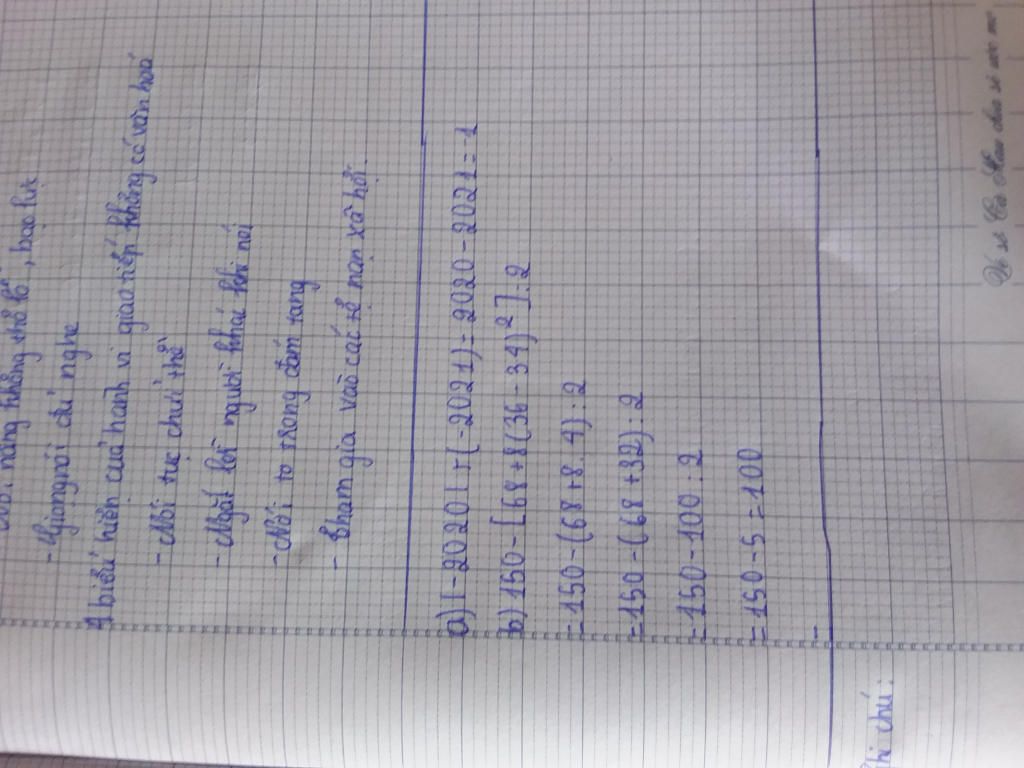 nói năng không thô lỗ, bạo lực
- Giọng nói dễ nghe
4 biểu hiện của hành vi giao tiếp không có văn hoá
- Nói tục chửi thề
- Ngắt lời người khác khi nói
- Nói to trong đám tang
- Tham gia vào các tệ nạn xã hội.
a) |-2020| + (-2021) = 2020 - 2021 = -1
b) 150 - [68 + 8(36 - 34)² ] : 2
= 150 - (68 + 8.4) : 2
= 150 - (68 + 32) : 2
= 150 - 100 : 2
= 150 - 5 = 100
-
Ghi chú :